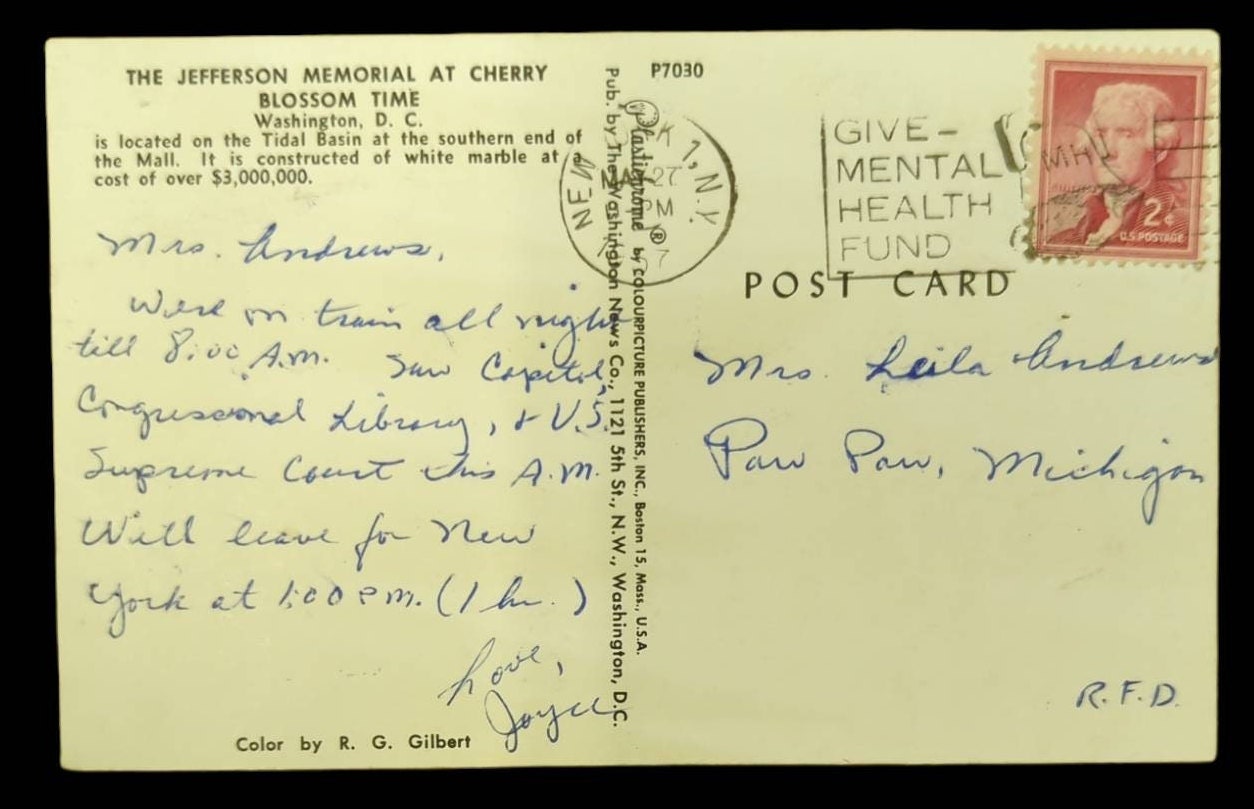 THE JEFFERSON MEMORIAL AT CHERRY
BLOSSOM TIME
Washington, D. C.
is located on the Tidal Basin at the southern end of
the Mall. It is constructed of white marble at a
cost of over $3,000,000.
Mrs. Andrews,
Were on train all night
till 8:00 A.M. Saw Capitol,
Congressional Library, & U.S.
Supreme Court this A.M.
Will leave for New
York at 1:00 P.M. (1 hr.)
Love,
Joyce
Color by R. G. Gilbert
Pub. by The Washington News Co., 1121 5th St., N.W., Washington, D.C.
Plastichrome ® by COLOURPICTURE PUBLISHERS, INC., Boston 15, Mass., U.S.A.
P7030
NEW 1, N.Y.
27
PM
GIVE-
MENTAL
HEALTH
FUND
MH
2¢
U.S. POSTAGE
POST CARD
Mrs. Leila Andrews
Paw Paw, Michigan
R.F.D.